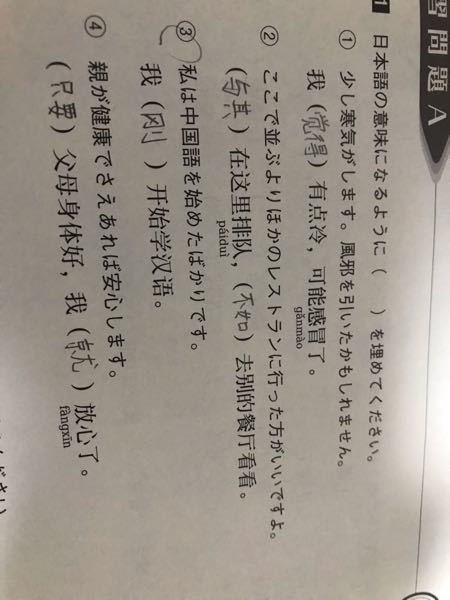 習問題 A
1 日本語の意味になるように（　　）を埋めてください。
① 少し寒気がします。風邪を引いたかもしれません。
我（觉得）有点冷，可能感冒了。
gǎnmào
② ここで並ぶよりほかのレストランに行った方がいいですよ。
（与其）在这里排队，（不如）去别的餐厅看看。
páiduì
③ 私は中国語を始めたばかりです。
我（刚）开始学汉语。
④ 親が健康でさえあれば安心します。
（只要）父母身体好，我（就）放心了。
fàngxīn
ください